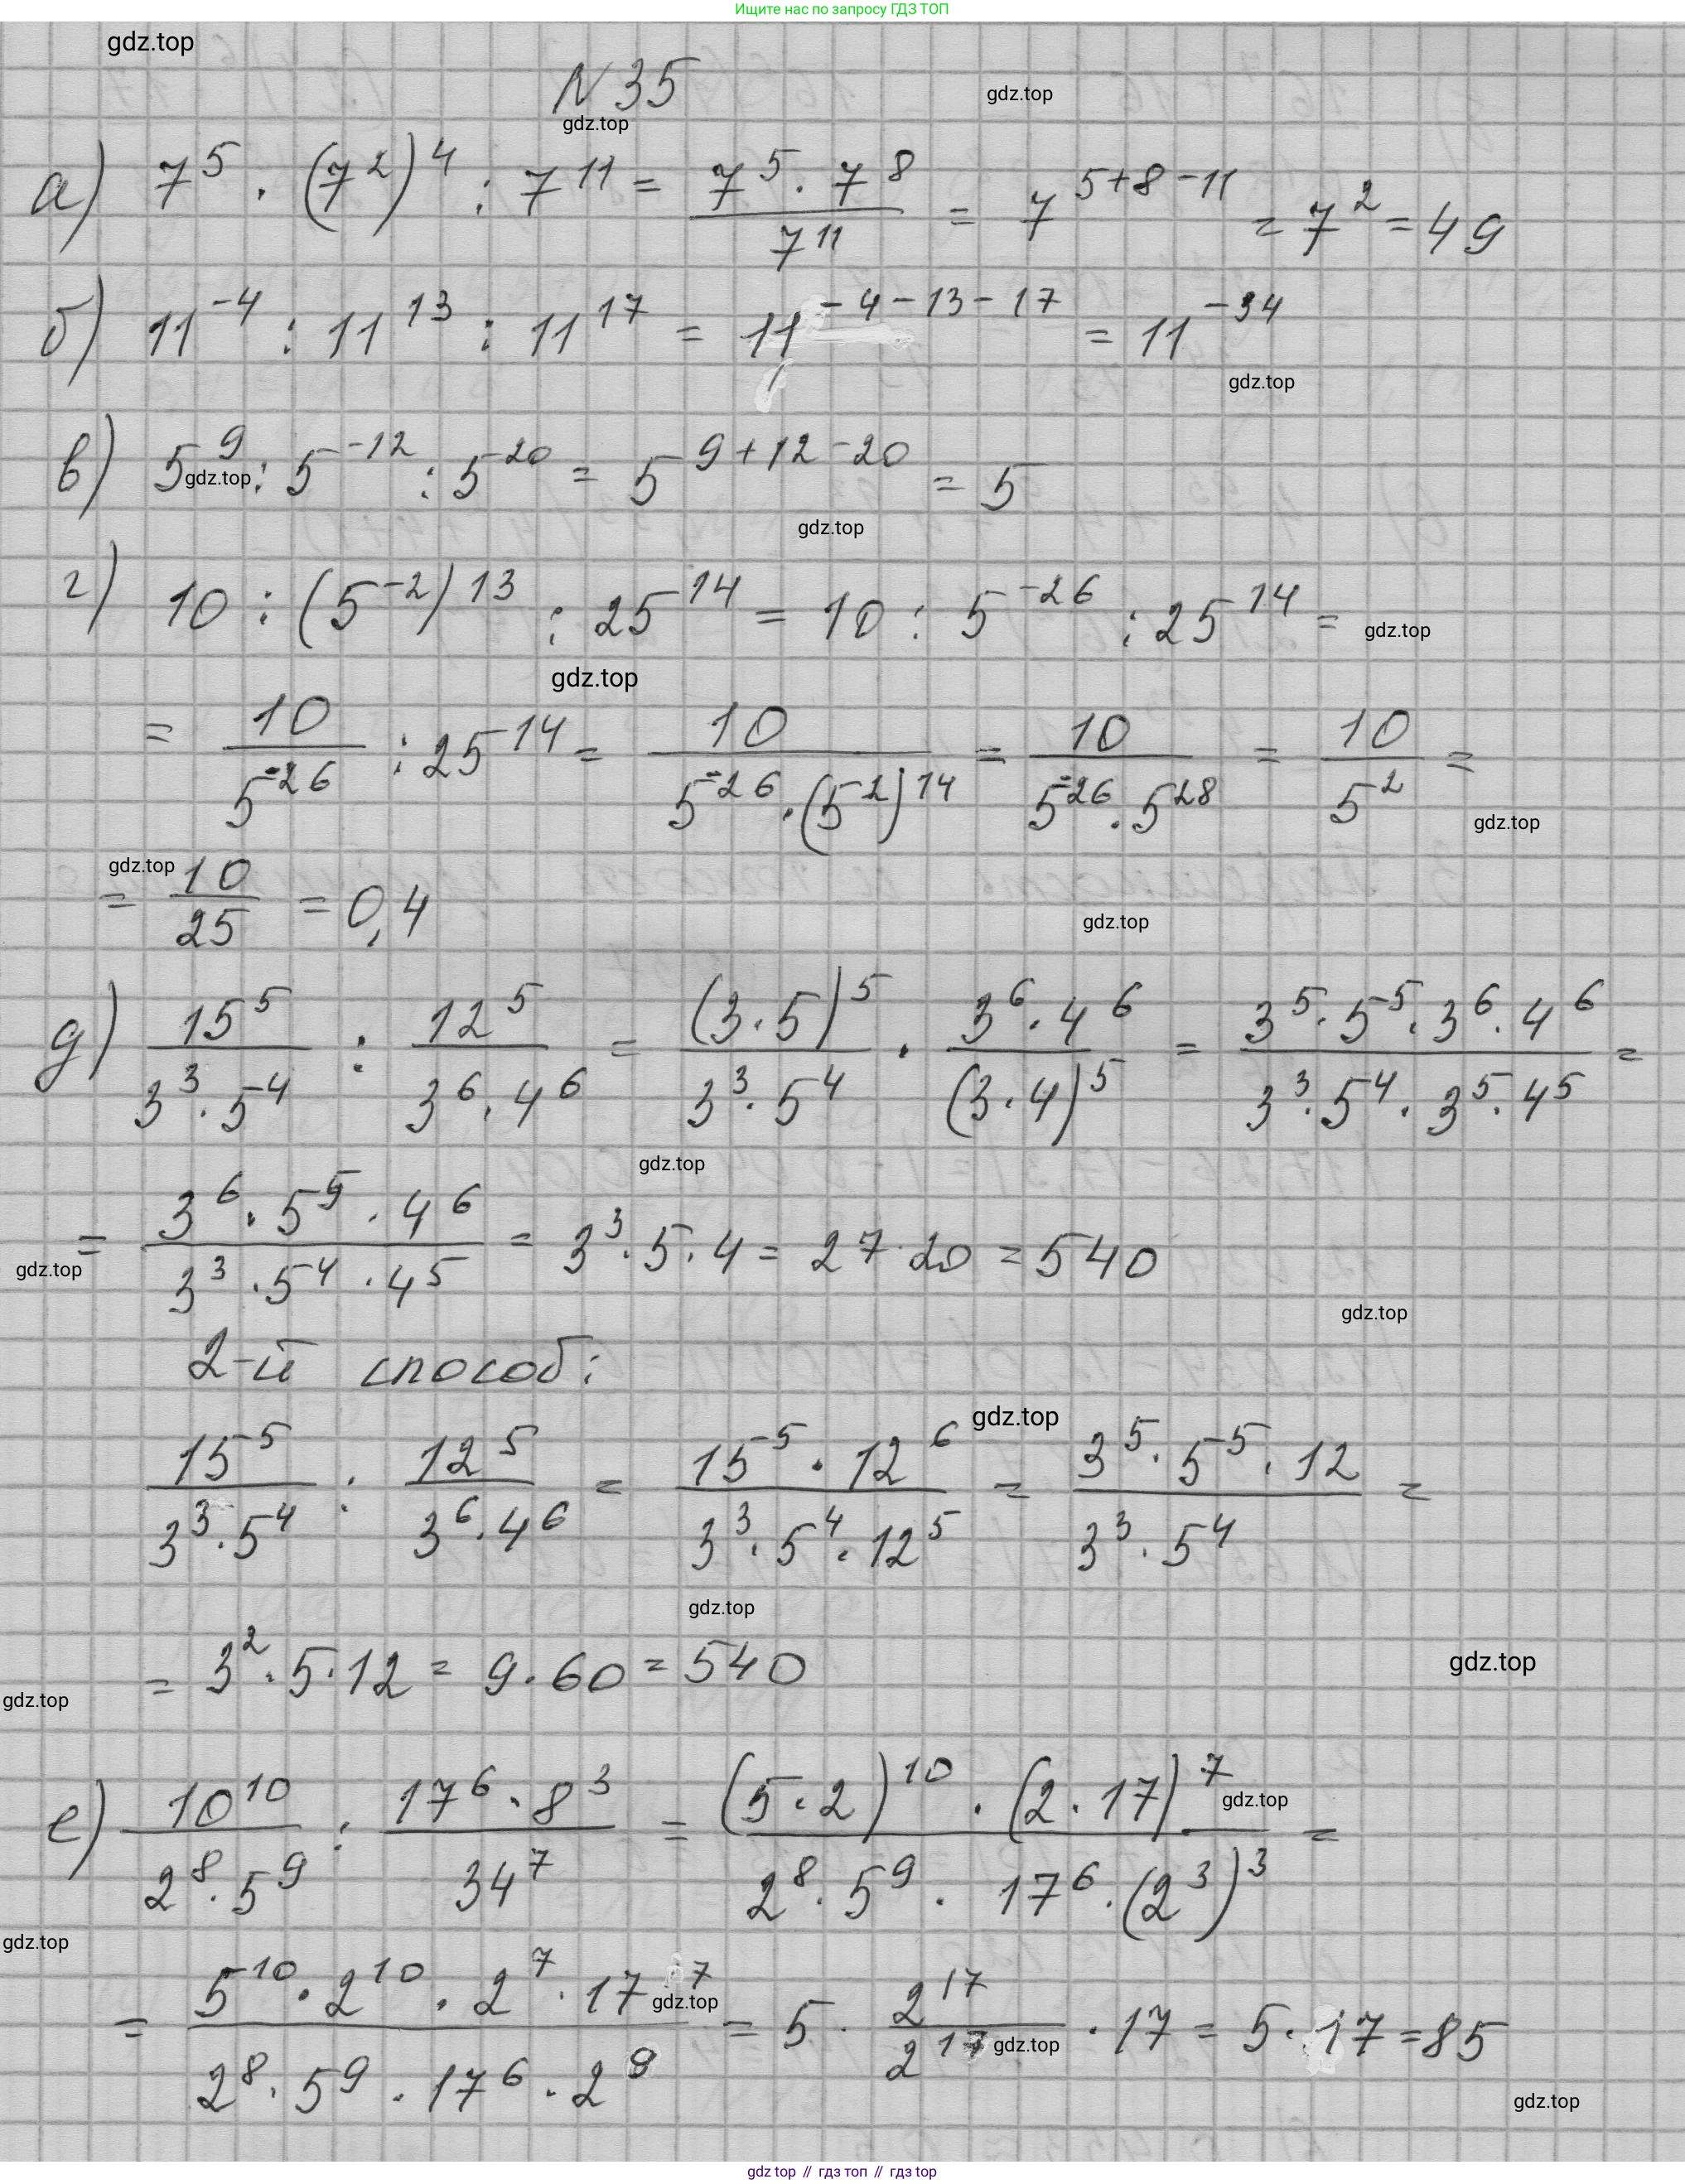 Ищите нас по запросу ГДЗ ТОП
gdz.top
N 35
gdz.top
gdz.top
а) 7^5 · (7^2)^4 : 7^11 = (7^5 · 7^8)/(7^11) = 7^(5+8-11) = 7^2 = 49
б) 11^(-4) : 11^13 : 11^17 = 11^(-4-13-17) = 11^(-34)
gdz.top
в) 5^9 : 5^(-12) : 5^20 = 5^(9+12-20) = 5
gdz.top
gdz.top
г) 10 : (5^(-2))^13 : 25^14 = 10 : 5^(-26) : 25^14 =
gdz.top
gdz.top
= 10/5^(-26) : 25^14 = 10/(5^(-26) · (5^2)^14) = 10/(5^(-26) · 5^28) = 10/5^2 =
gdz.top
gdz.top
= 10/25 = 0,4
gdz.top
д) 15^5/(3^3 · 5^4) : 12^5/(3^6 · 4^6) = (3·5)^5/(3^3 · 5^4) · (3^6 · 4^6)/(3·4)^5 = (3^5 · 5^5 · 3^6 · 4^6)/(3^3 · 5^4 · 3^5 · 4^5) =
gdz.top
= (3^6 · 5^5 · 4^6)/(3^3 · 5^4 · 4^5) = 3^3 · 5 · 4 = 27 · 20 = 540
gdz.top
gdz.top
2-й способ:
gdz.top
15^5/(3^3 · 5^4) : 12^5/(3^6 · 4^6) = (15^5 · 12^6)/(3^3 · 5^4 · 12^5) = (3^5 · 5^5 · 12)/(3^3 · 5^4) =
gdz.top
= 3^2 · 5 · 12 = 9 · 60 = 540
gdz.top
gdz.top
е) 10^10/(2^8 · 5^9) : (17^6 · 8^3)/34^7 = ((5·2)^10 · (2·17)^7)/(2^8 · 5^9 · 17^6 · (2^3)^3) =
gdz.top
gdz.top
= (5^10 · 2^10 · 2^7 · 17^7)/(2^8 · 5^9 · 17^6 · 2^9) = 5 · 2^17/2^17 · 17 = 5 · 17 = 85
gdz.top
gdz.top
gdz.top
gdz top // гдз топ // гдз top